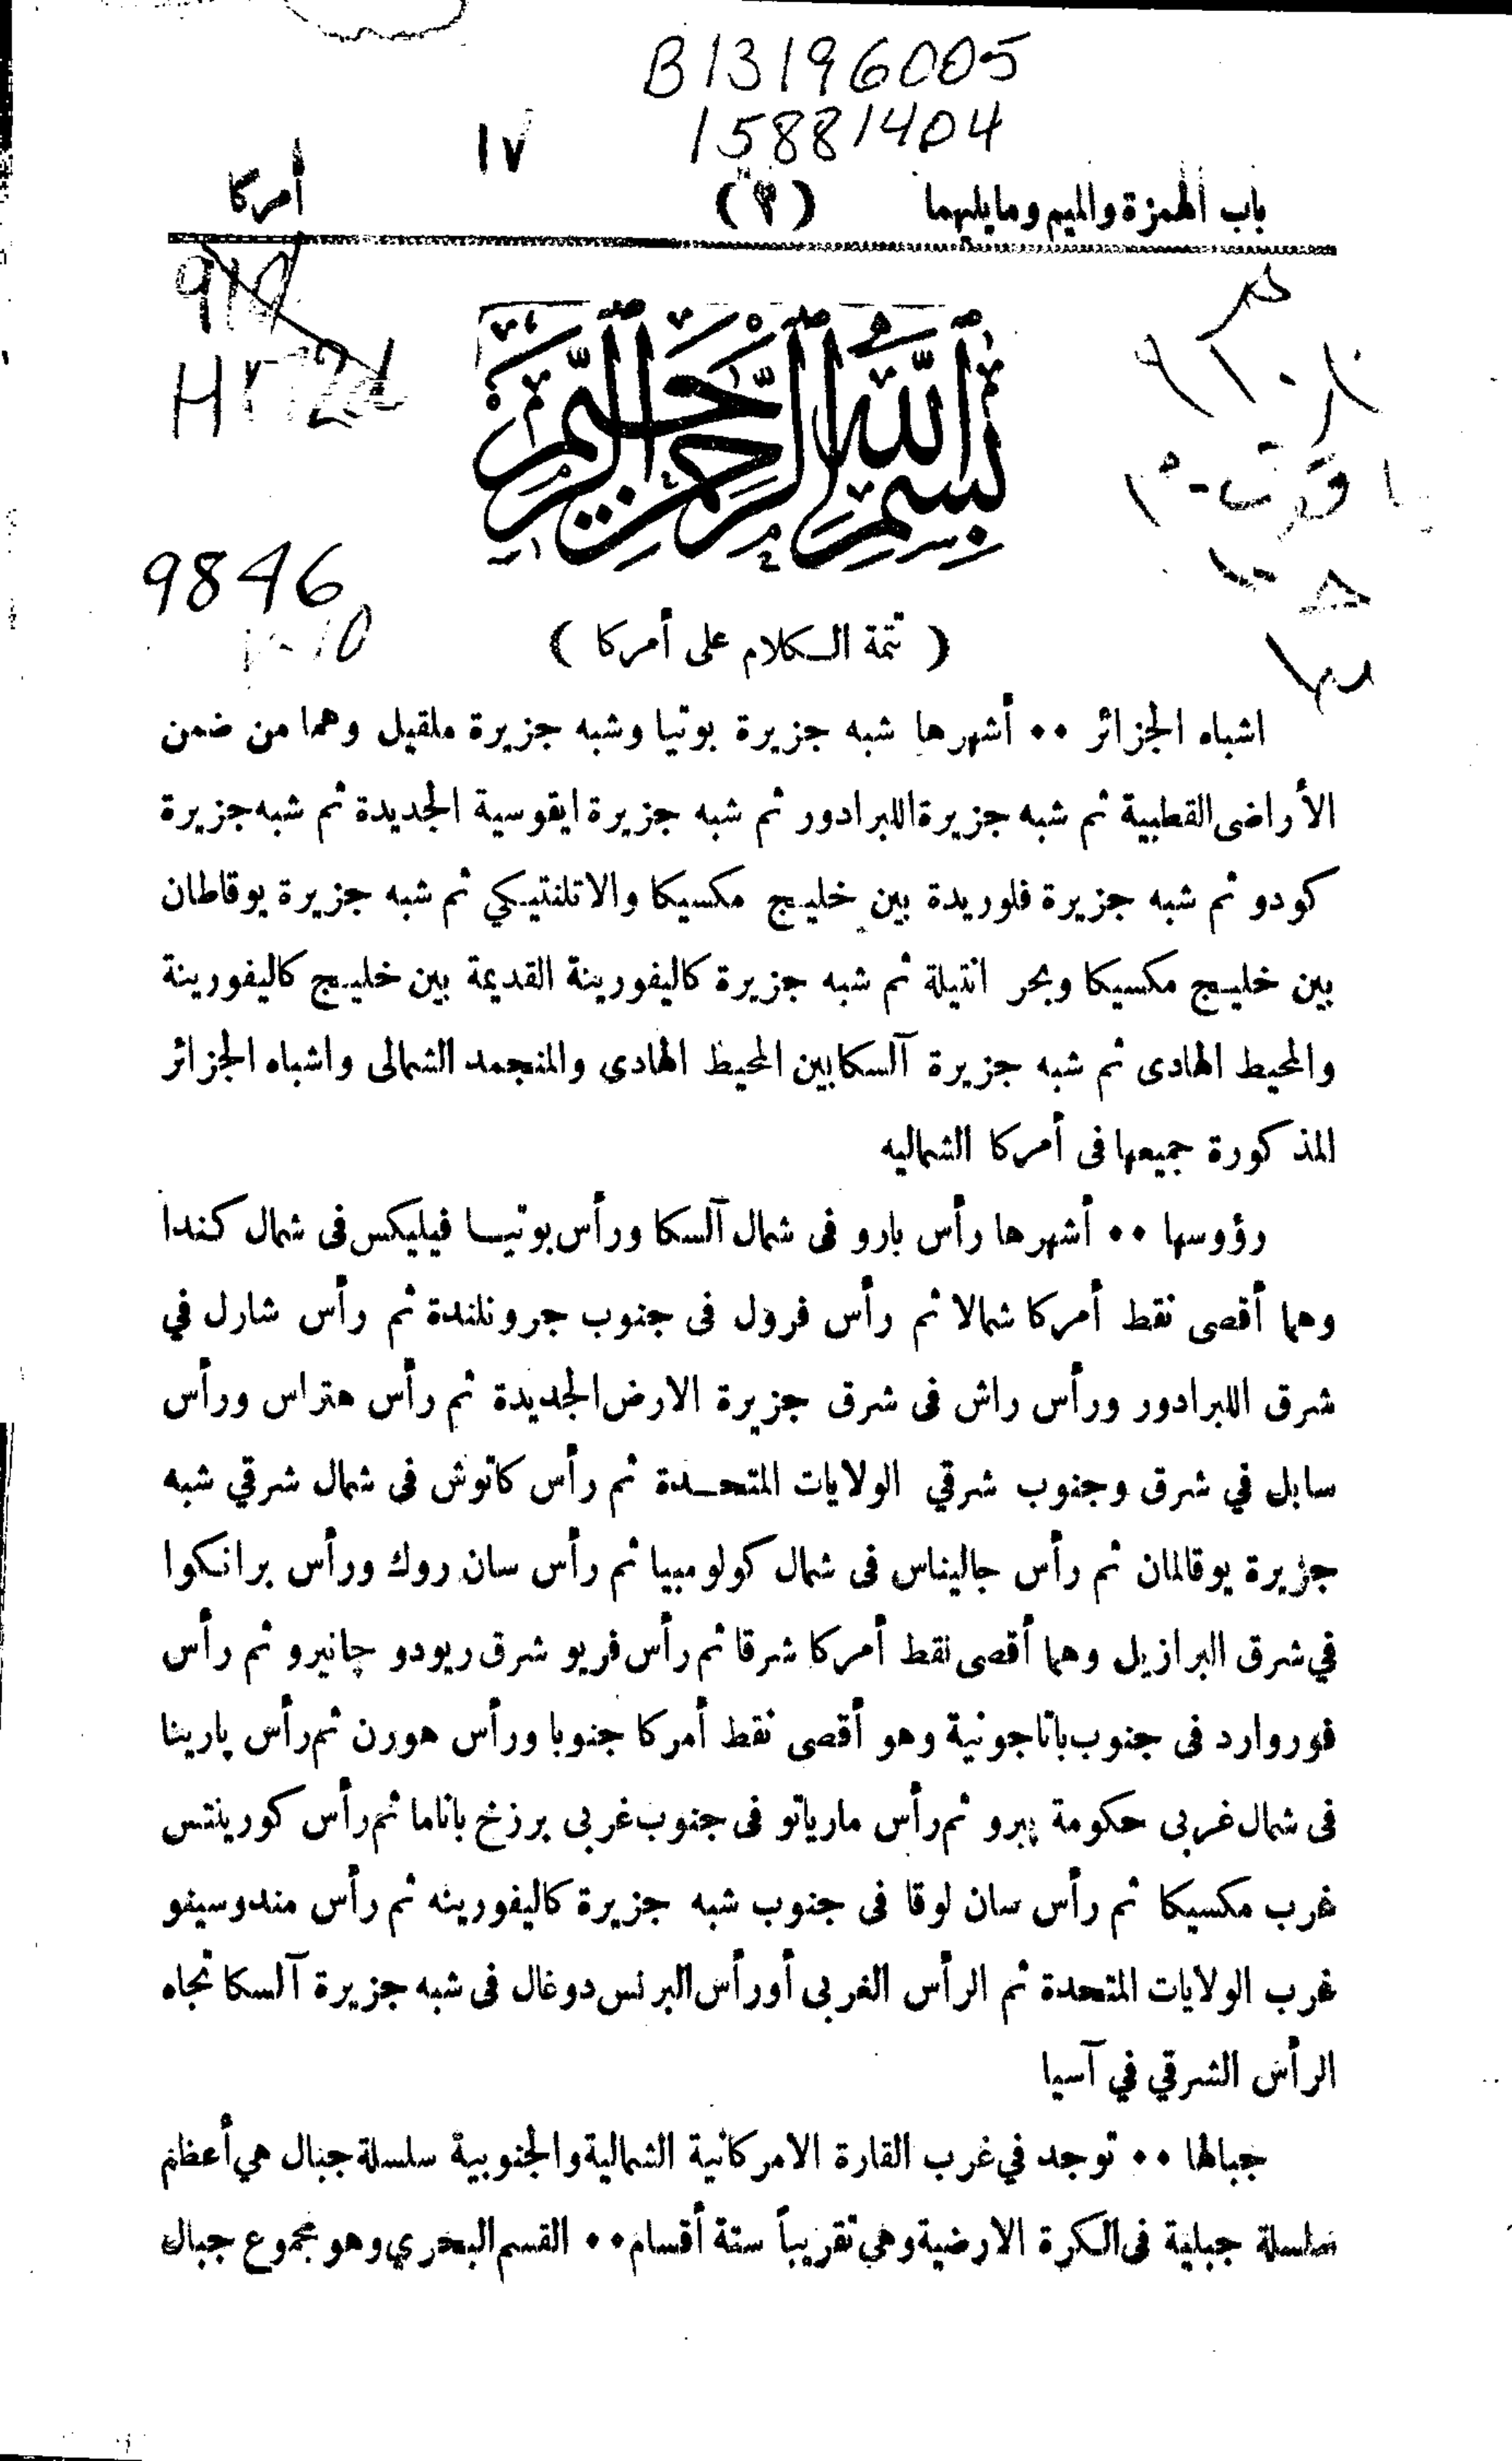 B13196005
15881404
١٧
باب الهمزة والميم وما يليهما (٢) أمركا
9846
بسم الله الرحمن الرحيم
( تتمة الكلام على أمركا )
اشباه الجزائر ٠٠ أشهرها شبه جزيرة بوتيا وشبه جزيرة ملقيل وهما من ضمن
الأراضى القطبية ثم شبه جزيرة اللبرادور ثم شبه جزيرة ايقوسية الجديدة ثم شبه جزيرة
كودو ثم شبه جزيرة فلوريدة بين خليج مكسيكا والاتلنتيكي ثم شبه جزيرة يوقاطان
بين خليج مكسيكا وبحر انتيلة ثم شبه جزيرة كاليفورينة القديمة بين خليج كاليفورينة
والمحيط الهادى ثم شبه جزيرة آلسكا بين المحيظ الهادى والمنجمد الشمالى واشباه الجزائر
المذكورة جميعها فى أمركا الشماليه
رؤوسها ٠٠ أشهرها رأس بارو فى شمال آلسكا ورأس بوتيا فيليكس فى شمال كندا
وهما أقصى نقط أمركا شمالا ثم رأس فرول فى جنوب جرونلندة ثم رأس شارل في
شرق اللبرادور ورأس راش فى شرق جزيرة الارض الجديدة ثم رأس هتراس ورأس
سابل في شرق وجنوب شرقي الولايات المتحدة ثم رأس كاتوش فى شمال شرقي شبه
جزيرة يوقالمان ثم رأس جاليناس فى شمال كولومبيا ثم رأس سان روك ورأس برانكوا
في شرق البرازيل وهما أقصى نقط أمركا شرقا ثم رأس فريو شرق ريودو چانيرو ثم رأس
فوروارد فى جنوب باتاجونية وهو أقصى نقط أمركا جنوبا ورأس هورن ثم رأس پارينا
فى شمال غربى حكومة پيرو ثم رأس مارياتو فى جنوب غربى برزخ باناما ثم رأس كورينتس
غرب مكسيكا ثم رأس سان لوقا فى جنوب شبه جزيرة كاليفورينه ثم رأس مندوسيفو
غرب الولايات المتحدة ثم الرأس الغربى أورأس البرنس دوغال فى شبه جزيرة آلسكا تجاه
الرأس الشرقي في آسيا
جبالها ٠٠ توجد في غرب القارة الامركانية الشمالية والجنوبية سلسلة جبال هي أعظم
سلسلة جبلية فى الكرة الارضية وهي تقريباً ستة أقسام ٠٠ القسم البحري وهو مجموع جبال